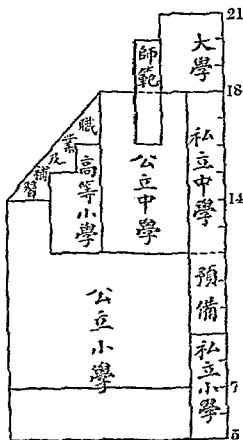 21
大學
師範
18
職業及補習
高等小學
公立中學
私立中學
14
預備
公立小學
私立小學
7
5